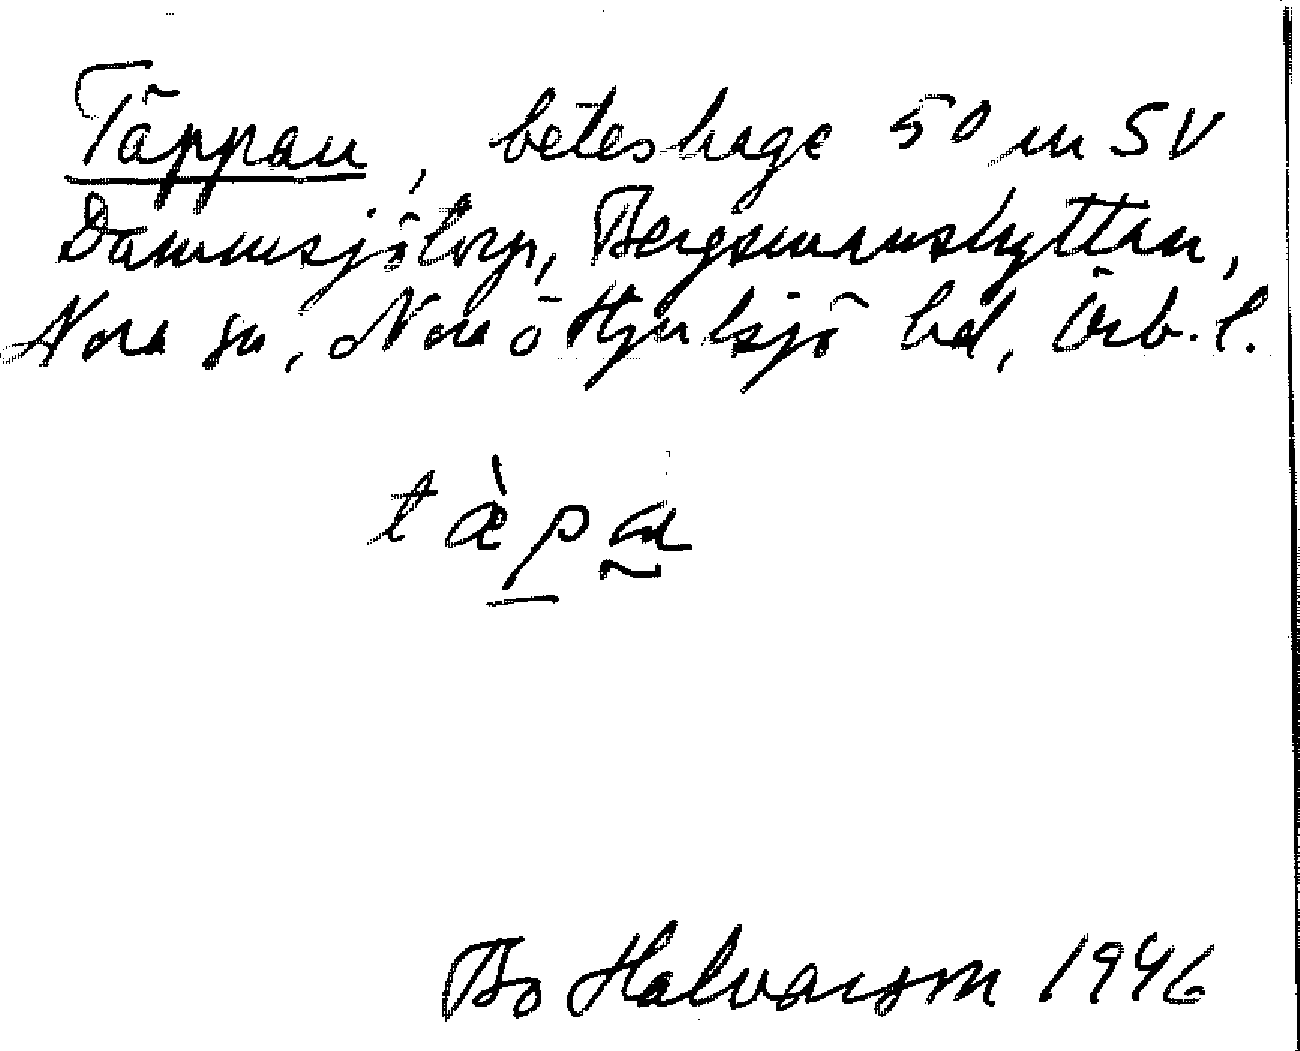 Täppan, beteshage 50 m SV
Dammsjötorp, Bergsmanshyttan,
Nora sn, Nora ö Hjulsjö bd, Örb. l.
tæ̀pa
Bo Halvarson 1946